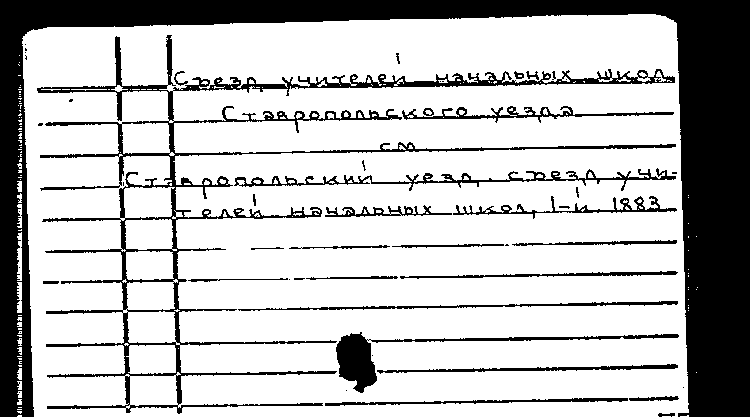 Съезд учителей начальных школ
Ставропольского уезда
см
Ставропольский уезд. съезд учи-
телей начальных школ, 1-й. 1883